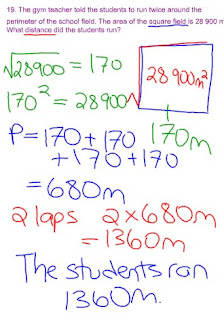 19. The gym teacher told the students to run twice around the
perimeter of the school field. The area of the square field is 28 900 m
What distance did the students run?
√28900 = 170
170² = 28900√
28 900m²
170m
P = 170 + 170
+ 170 + 170
= 680m
2 laps 2×680m
= 1360m
The students ran
1360m.